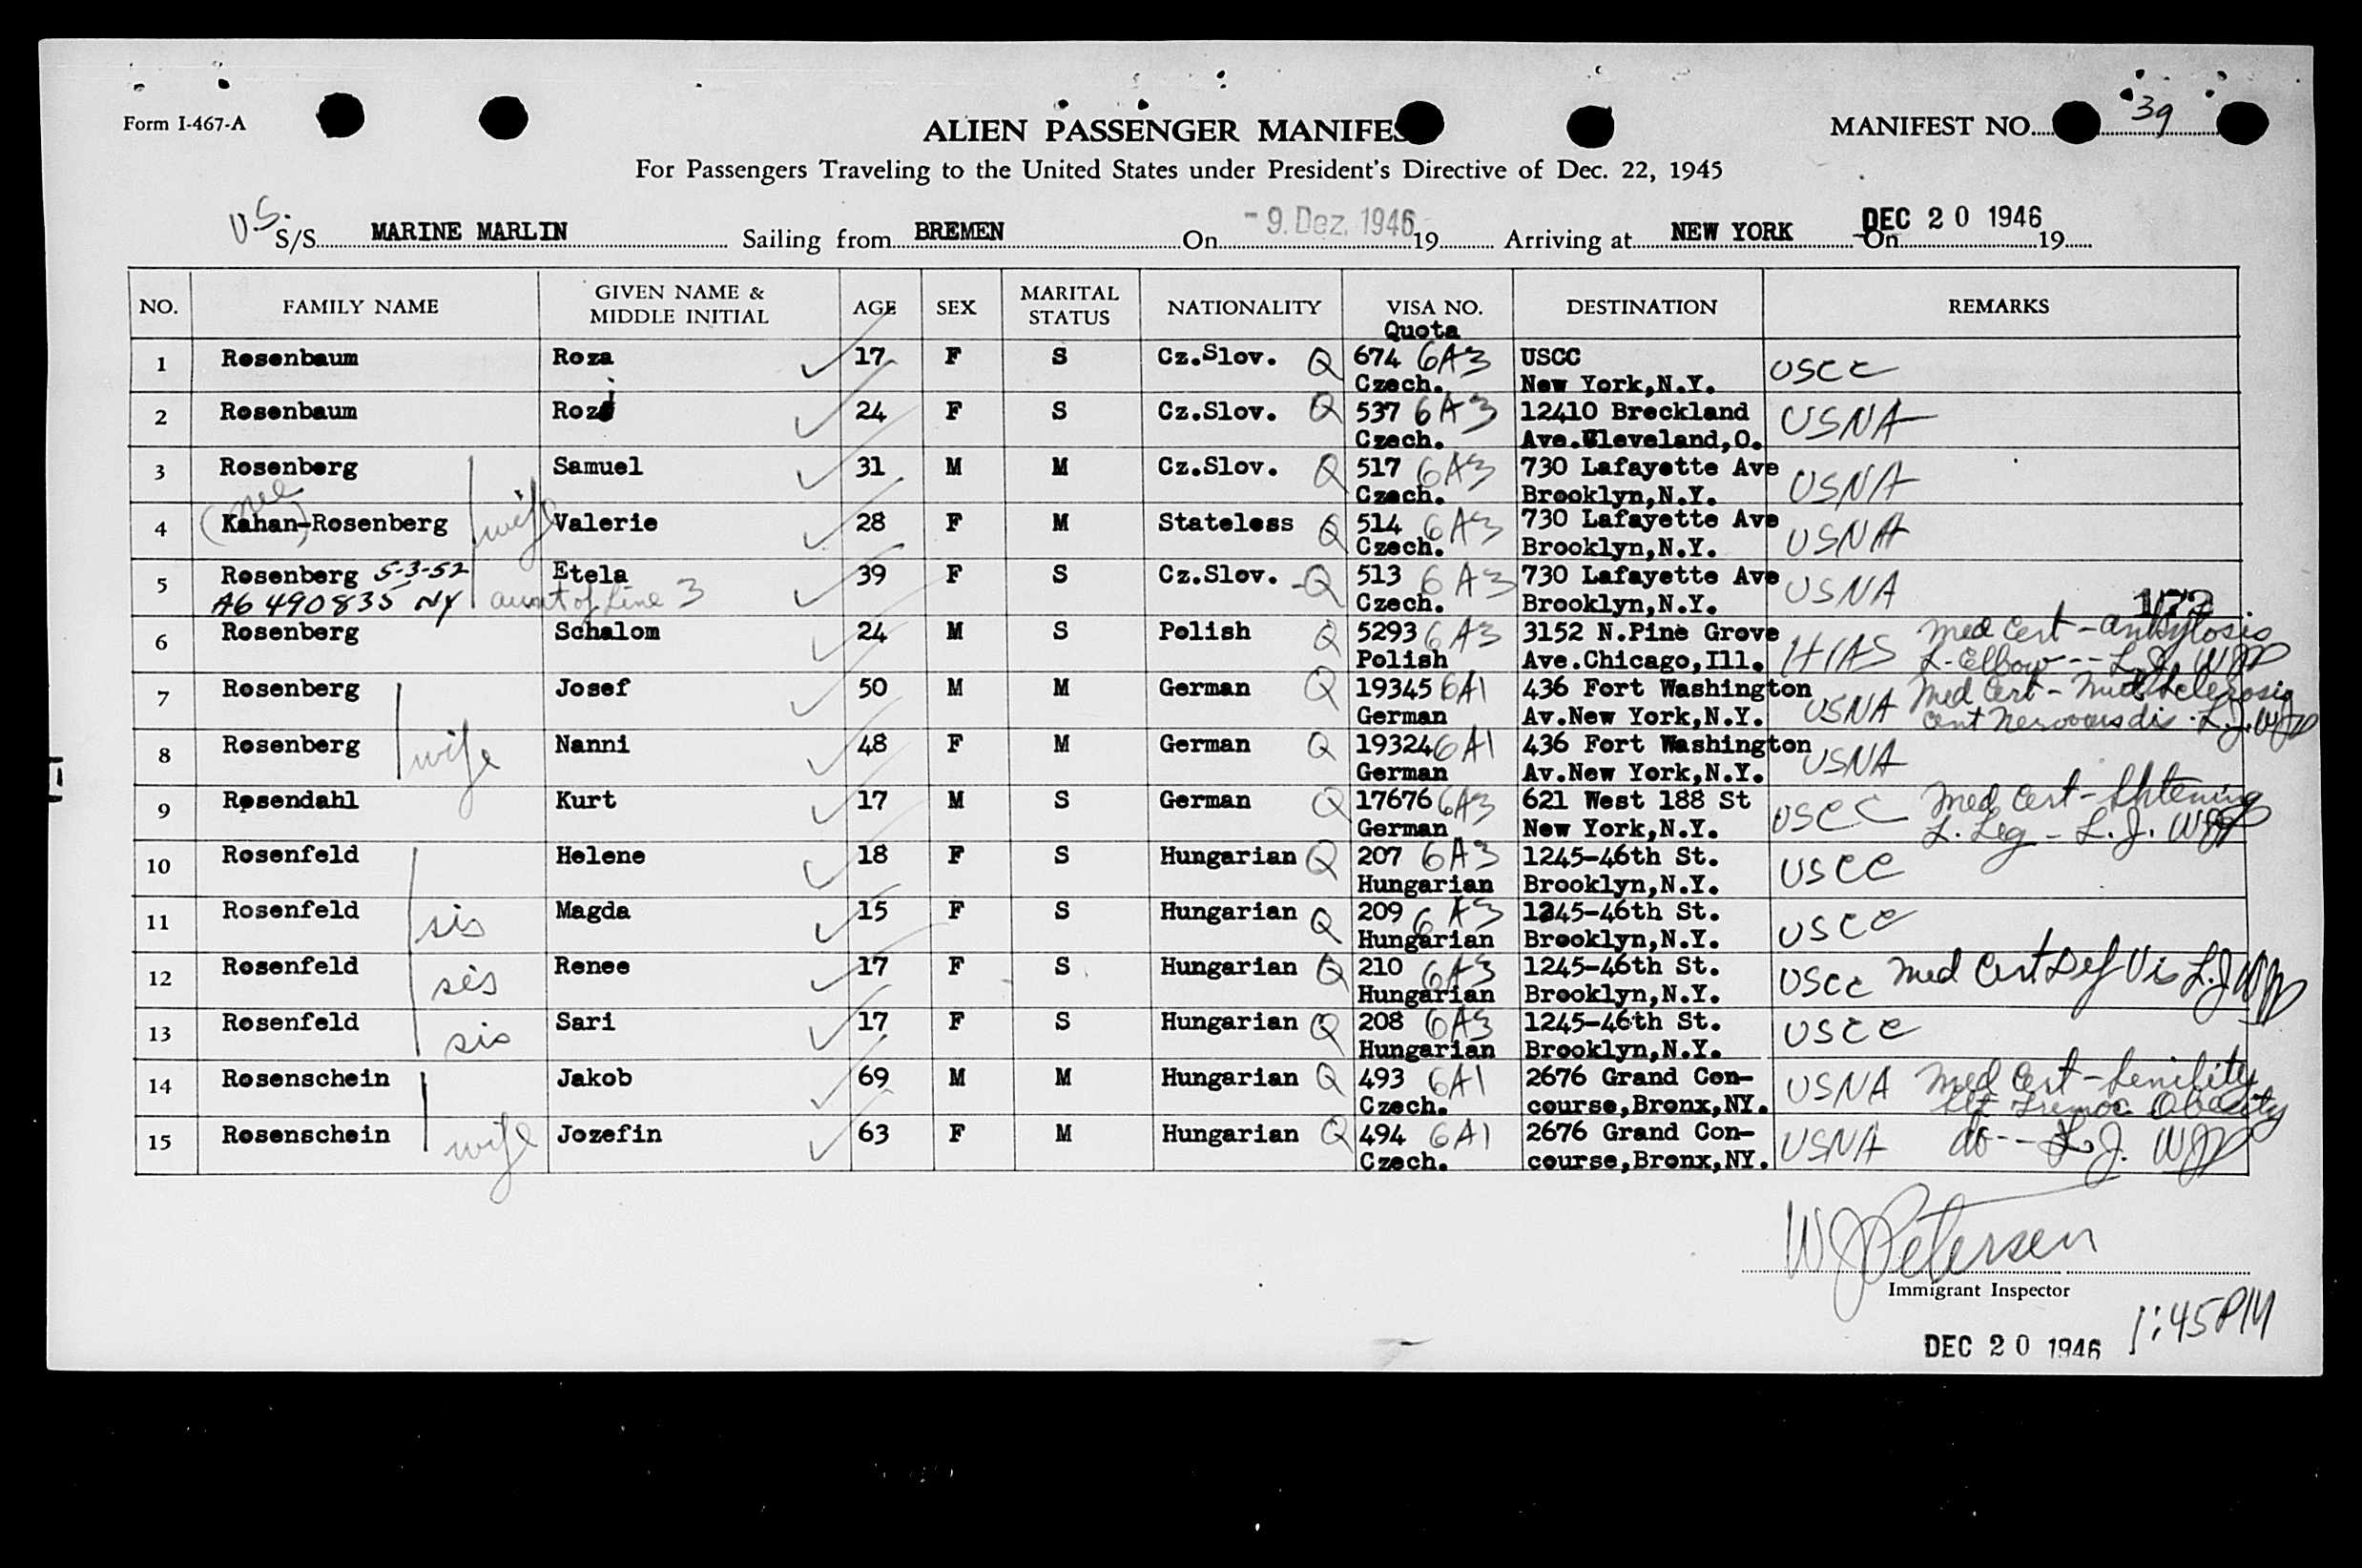 Form I-467-A
ALIEN PASSENGER MANIFES
MANIFEST NO. 39
For Passengers Traveling to the United States under President's Directive of Dec. 22, 1945
U.S. S/S MARINE MARLIN Sailing from BREMEN On - 9. Dez. 1946 19 Arriving at NEW YORK On DEC 20 1946 19
NO. FAMILY NAME GIVEN NAME & MIDDLE INITIAL AGE SEX MARITAL STATUS NATIONALITY VISA NO. Quota DESTINATION REMARKS
1 Rosenbaum Roza 17 F S Cz.Slov. Q 674 6A3 USCC USCC
Czech. New York,N.Y.
2 Rosenbaum F S Cz.Slov. Q 537 6A3 12410 Breckland USNA
24
Czech. Ave.Cleveland,O.
3 Rosenberg Samuel 31 M M Cz.Slov. Q 517 6A3 730 Lafayette Ave USNA
Czech. Brooklyn,N.Y.
nee
4 (Kahan-)Rosenberg wife Valerie 28 F M Stateless Q 514 6A3 730 Lafayette Ave USNA
Czech. Brooklyn,N.Y.
5 Rosenberg 5-3-52 Etela 39 F S Cz.Slov. -Q 513 6A3 730 Lafayette Ave USNA
A6 490835 NY aunt of line 3 Czech. Brooklyn,N.Y.
172
6 Rosenberg Schalom 24 M S Polish Q 5293 6A3 3152 N.Pine Grove HIAS Med Cert - ankylosis
Polish Ave.Chicago,Ill. L. Elbow -- L.J. WJP
7 Rosenberg Josef 50 M M German Q 19345 6A1 436 Fort Washington USNA Med Cert - Mult Sclerosis
German Av.New York,N.Y. cent nervous dis. L.J. WJP
8 Rosenberg wife Nanni 48 F M German Q 19324 6A1 436 Fort Washington USNA
German Av.New York,N.Y.
9 Rosendahl Kurt 17 M S German Q 17676 6A3 621 West 188 St USCC Med Cert - Shtening
German New York,N.Y. L. Leg - L.J. WJP
10 Rosenfeld Helene 18 F S Hungarian Q 207 6A3 1245-46th St. USCC
Hungarian Brooklyn,N.Y.
11 Rosenfeld sis Magda 15 F S Hungarian Q 209 6A3 1245-46th St. USCC
Hungarian Brooklyn,N.Y.
12 Rosenfeld sis Renee 17 F S Hungarian Q 210 6A3 1245-46th St. USCC Med Cert Def Vis L.J WJP
Hungarian Brooklyn,N.Y.
13 Rosenfeld sis Sari 17 F S Hungarian Q 208 6A3 1245-46th St. USCC
Hungarian Brooklyn,N.Y.
14 Rosenschein Jakob 69 M M Hungarian Q 493 6A1 2676 Grand Con- USNA Med Cert - Senility
Czech. course,Bronx,NY. Tremor Obesity
15 Rosenschein wife Jozefin 63 F M Hungarian Q 494 6A1 2676 Grand Con- USNA do -- L.J. WJP
Czech. course,Bronx,NY.
WJPetersen
Immigrant Inspector
DEC 20 1946 1:45PM